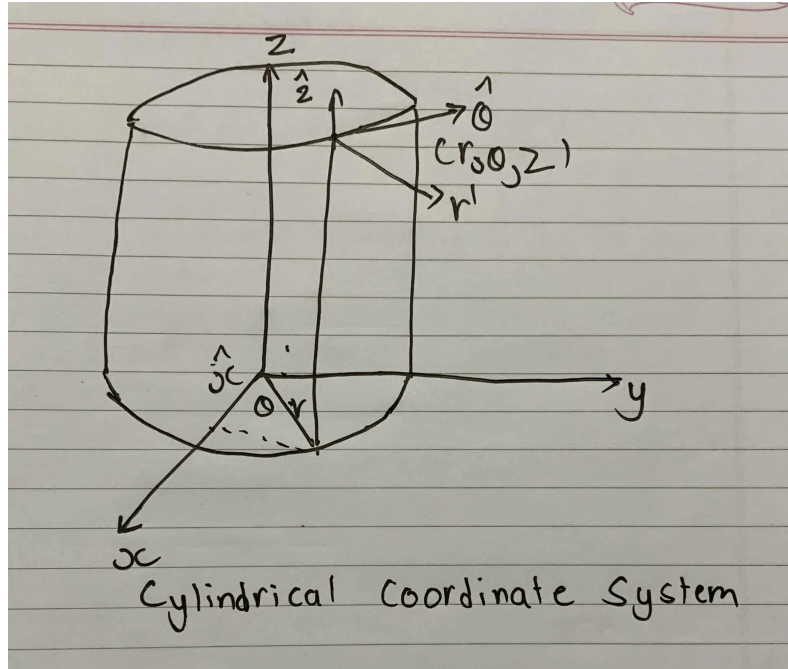 Z
ẑ
θ̂
(r,θ,z)
r'
x̂
θ r
y
x
Cylindrical Coordinate System